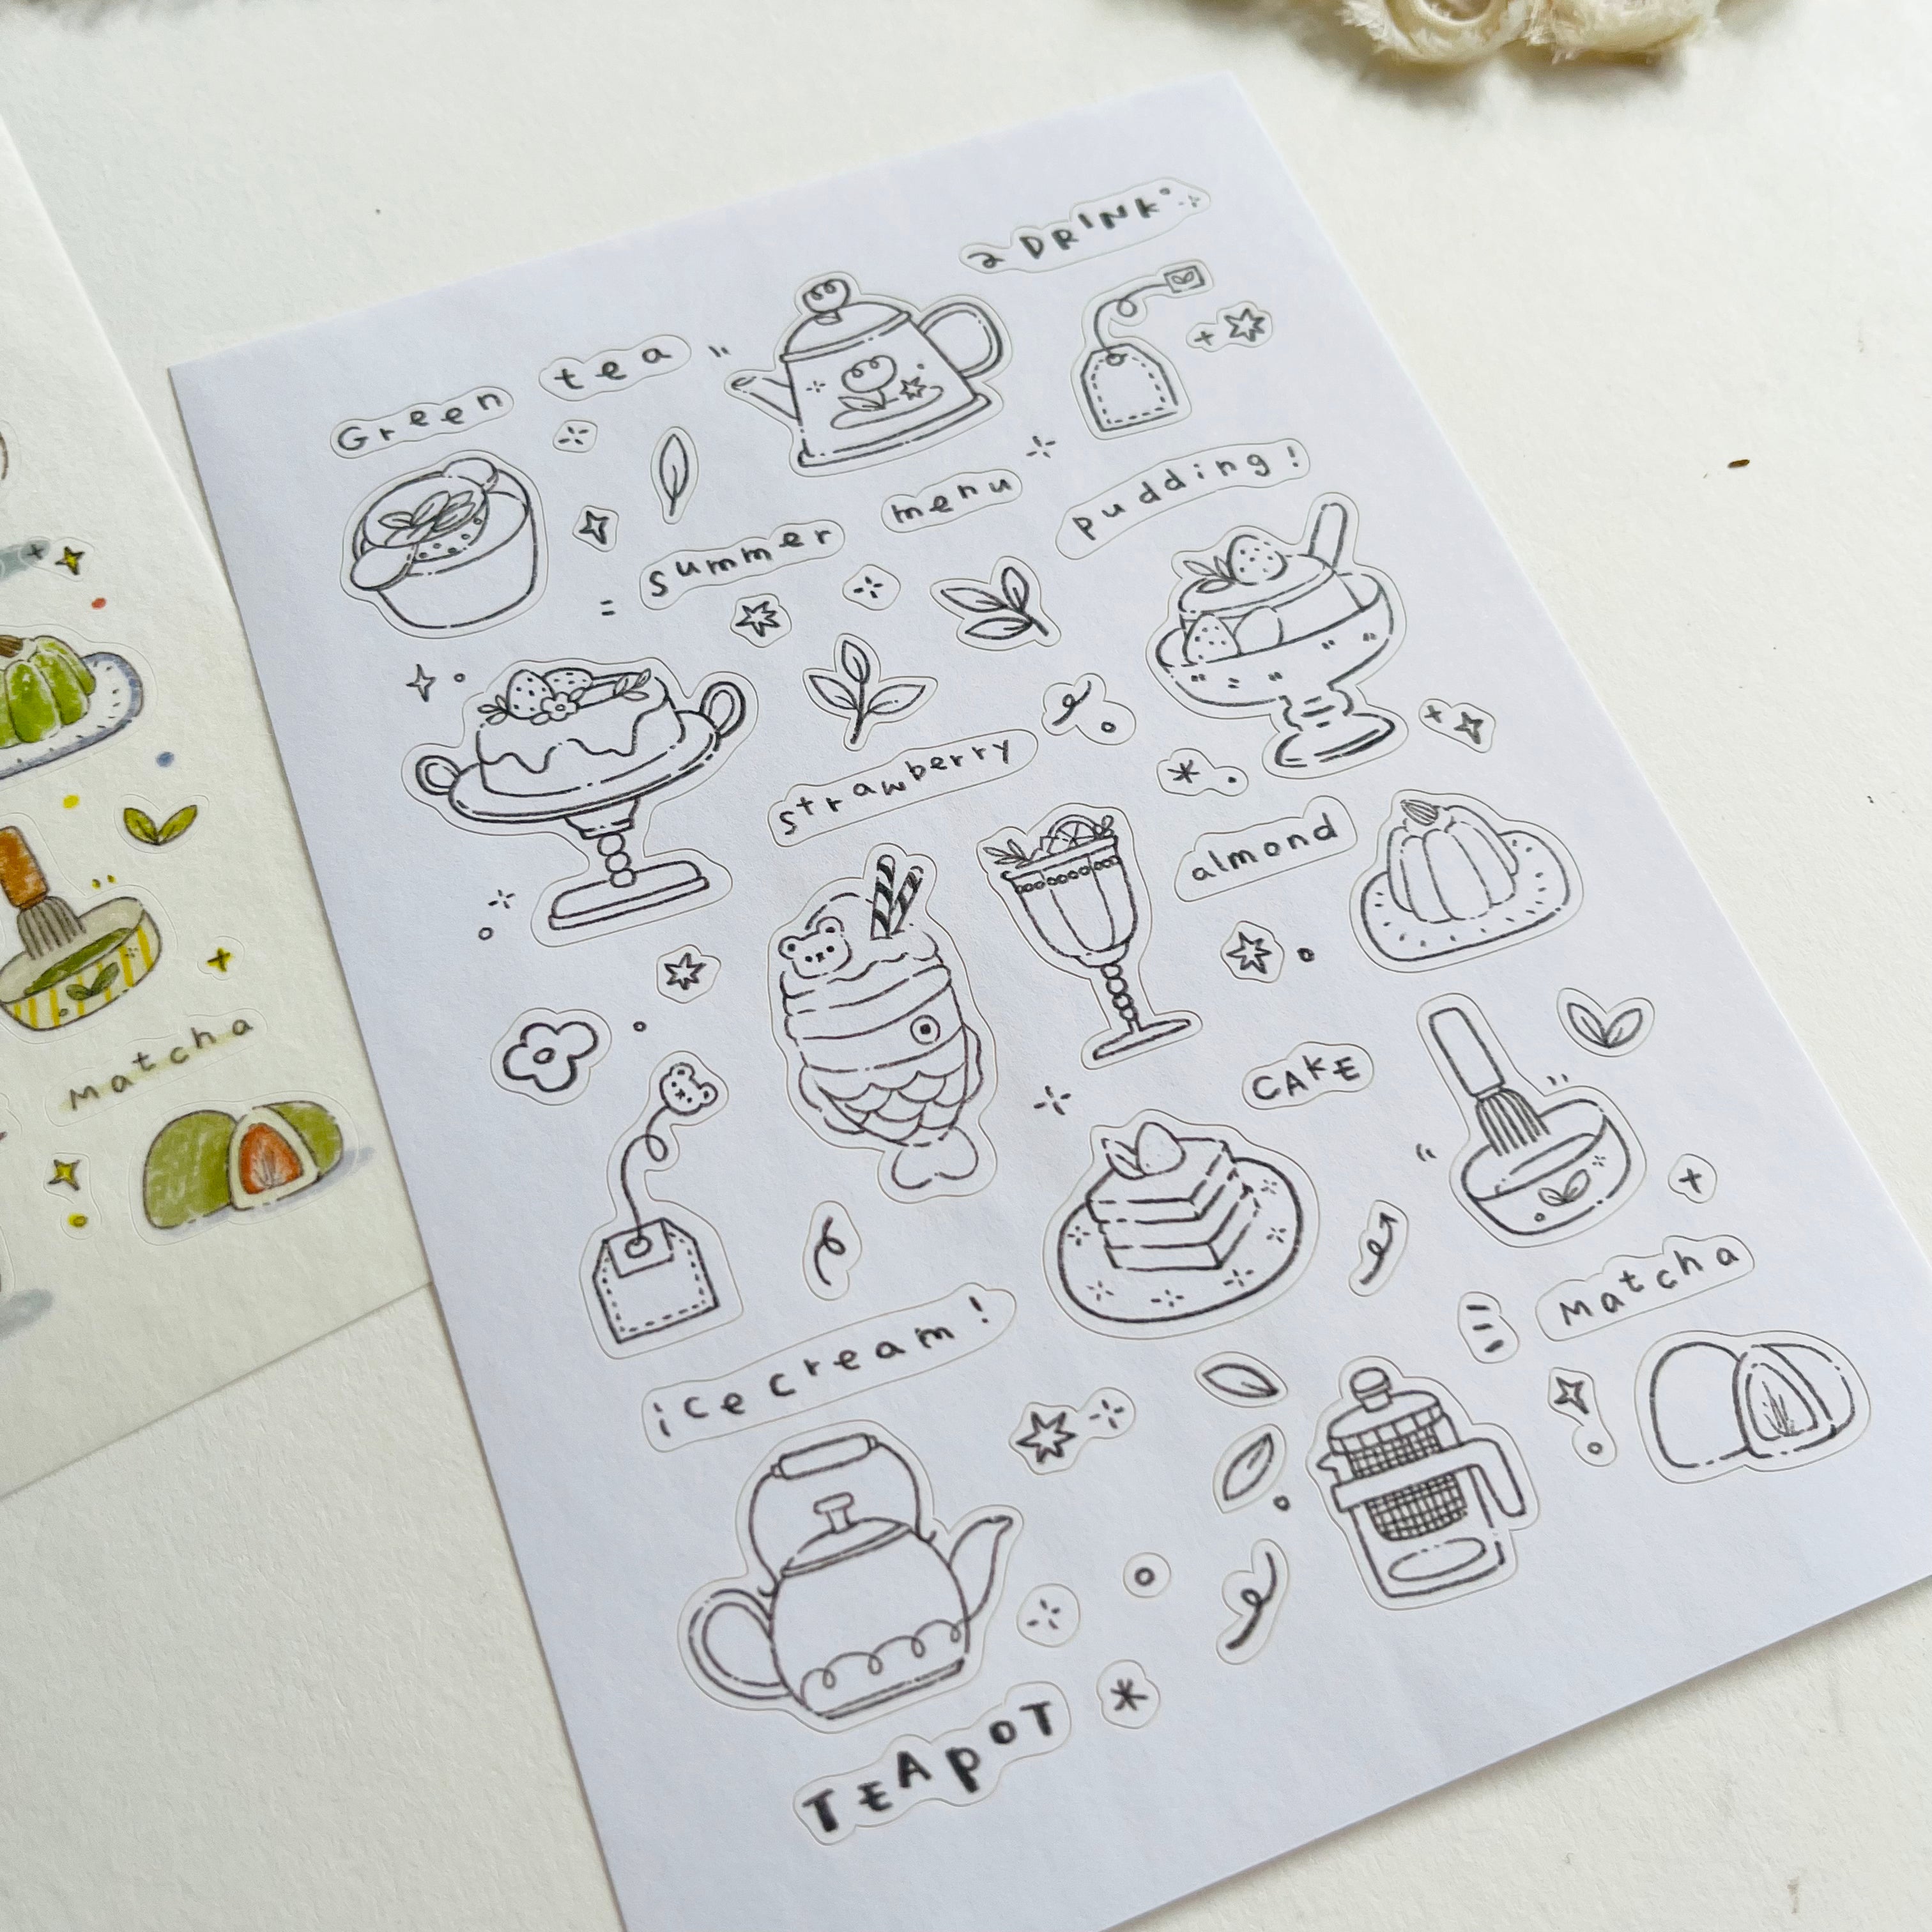 DRINK
Green tea
summer menu
pudding!
strawberry
almond
CAKE
Matcha
icecream!
TEApOT
Matcha